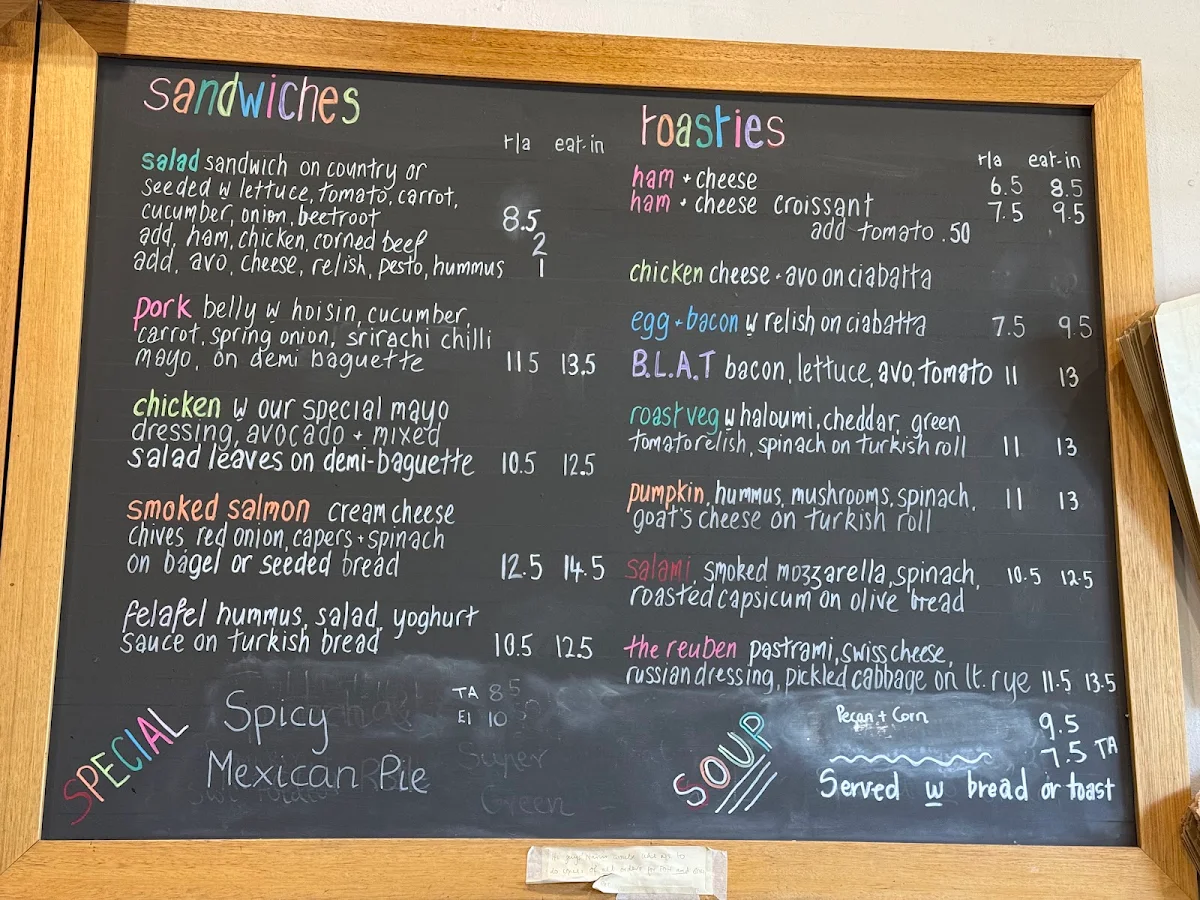 sandwiches
t/a eat-in
salad sandwich on country or
seeded w lettuce, tomato, carrot,
cucumber, onion, beetroot 8.5
add, ham, chicken, corned beef 2
add, avo, cheese, relish, pesto, hummus 1
pork belly w hoisin, cucumber,
carrot, spring onion, srirachi chilli
mayo, on demi baguette 11 5 13.5
chicken w our special mayo
dressing, avocado + mixed
salad leaves on demi-baguette 10.5 12.5
smoked salmon cream cheese
chives red onion, capers + spinach
on bagel or seeded bread 12.5 14.5
felafel hummus, salad, yoghurt
sauce on turkish bread 10.5 12.5
SPECIAL
Spicy
Mexican Pie
TA 8.5
EI 10
Super
Green
toasties
t/a eat-in
ham + cheese 6.5 8.5
ham + cheese croissant 7.5 9.5
add tomato .50
chicken cheese + avo on ciabatta
egg + bacon w relish on ciabatta 7.5 9.5
B.L.A.T bacon, lettuce, avo, tomato 11 13
roast veg w haloumi, cheddar, green
tomato relish, spinach on turkish roll 11 13
pumpkin, hummus, mushrooms, spinach, 11 13
goat's cheese on turkish roll
salami, smoked mozzarella, spinach, 10.5 12.5
roasted capsicum on olive bread
the reuben pastrami, swiss cheese,
russian dressing, pickled cabbage on lt. rye 11.5 13.5
SOUP
Pecan + Corn 9.5
7.5 TA
Served w bread or toast